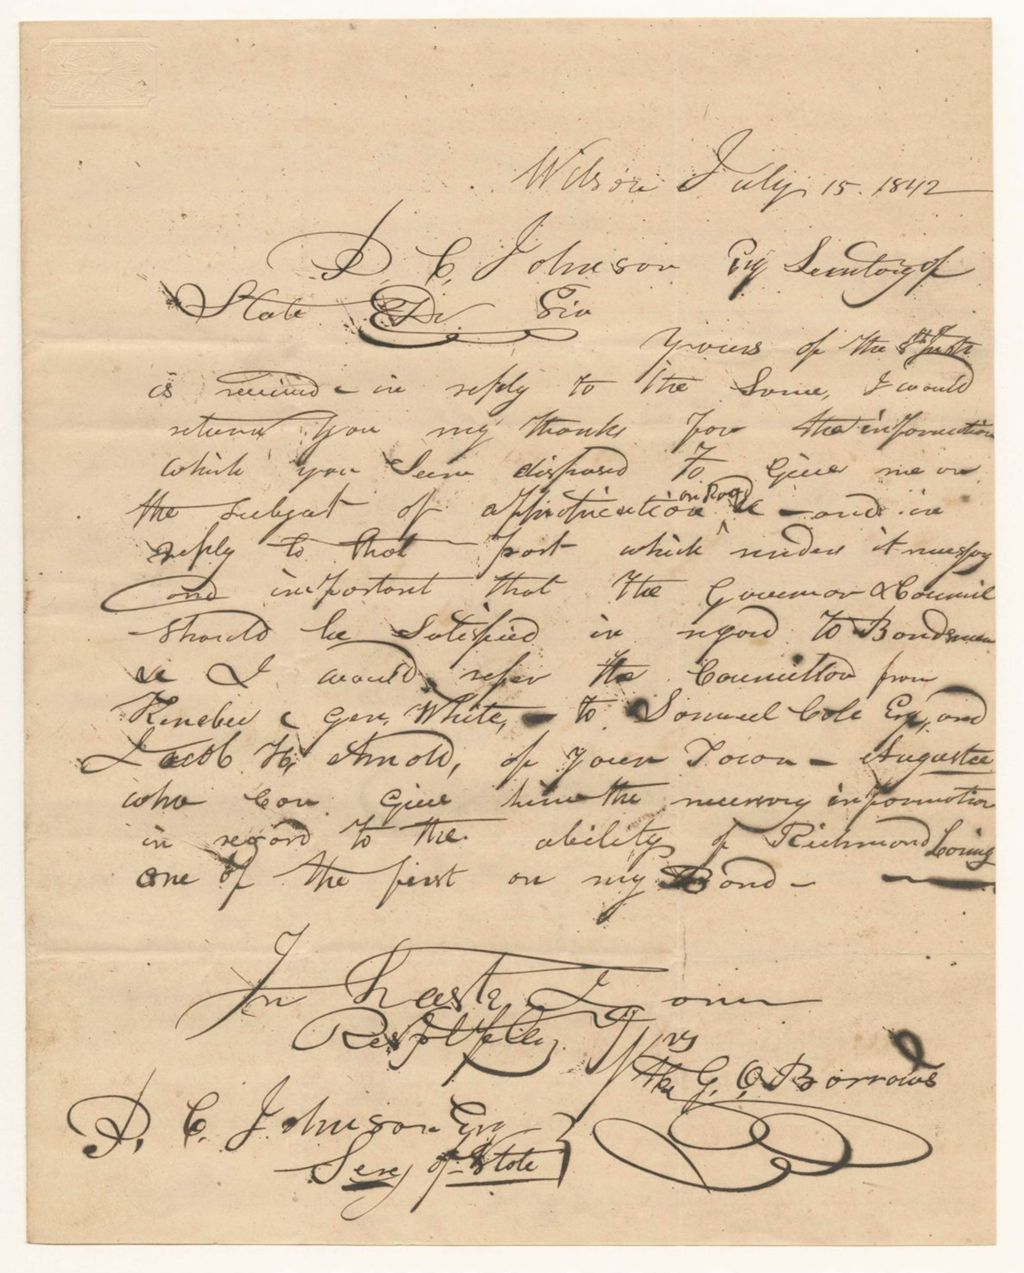 Wilson July 15. 1842
P. C. Johnson Esq Secretary of
State Dr Sir
Yours of the 8th Inst
is received - in reply to the Same, I would
return you my thanks for the information
which you Seem disposed to give me on
the subject of on Rags &c - and in
reply to that part which renders it necessary
and important that the Governor & Council
Should be Satisfied in regard to Bondsmen
&c I would refer the Councillor from
Kenebec & Gen. White, - to Samuel Cole Esq, and
Jacob H. Arnold, of your Town - Augusta
who Can give him the necessary information
in regard to the ability of Richmond Loring
one of the first on my Bond -
In haste I am
Respectfully yrs
G. O. Borrows
P. C. Johnson Esq
Secy of State